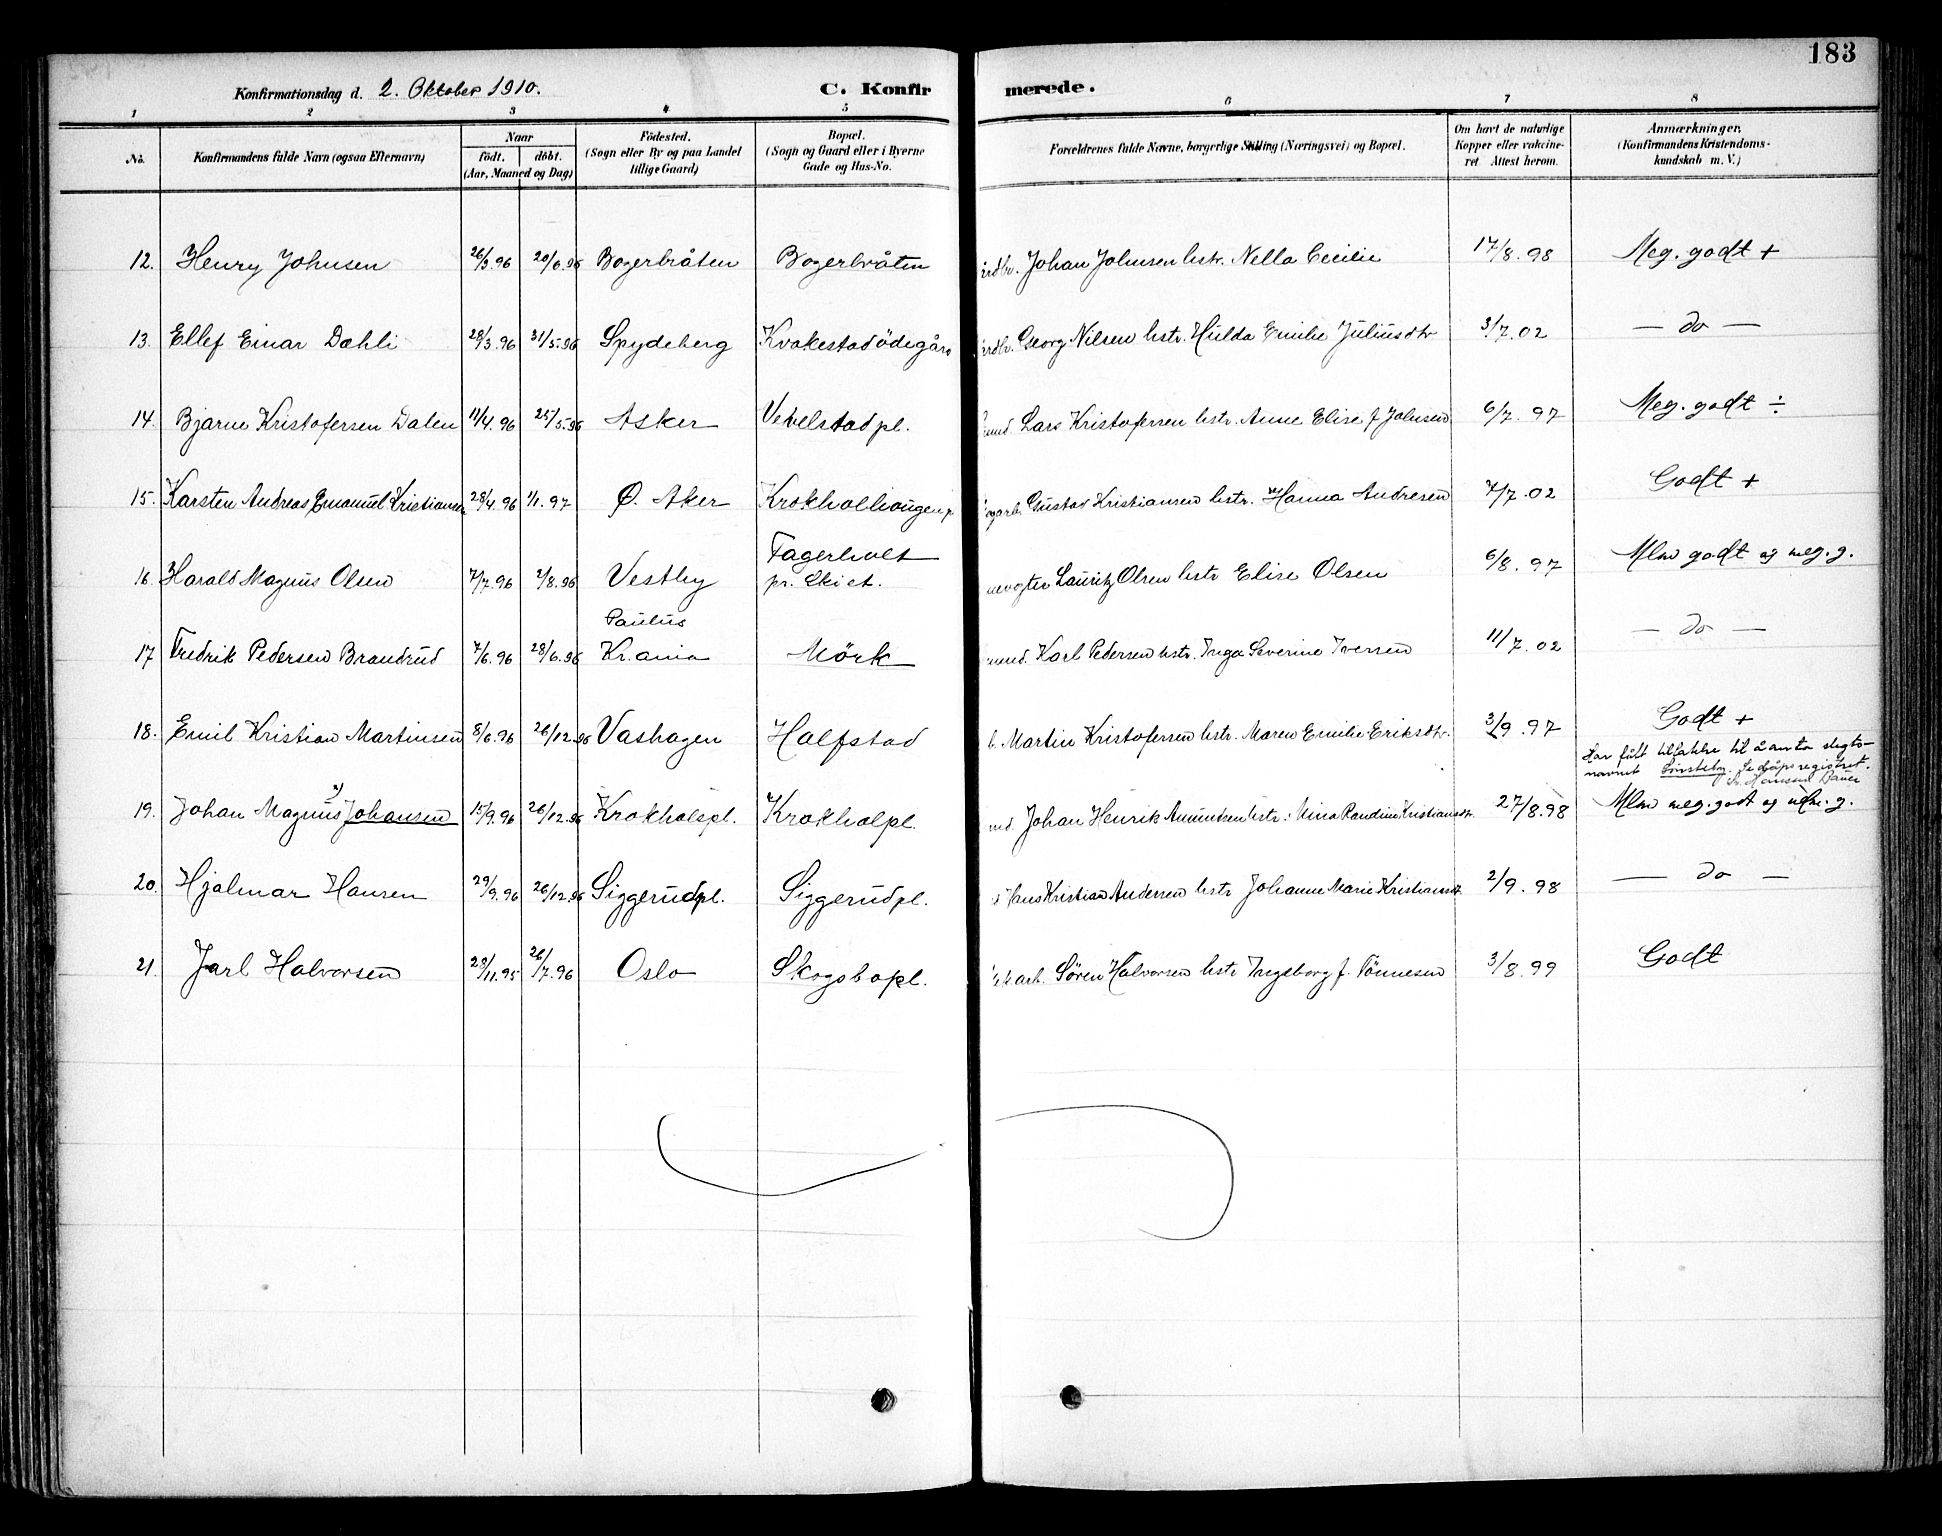 183
Konfirmationsdag d. 2. Oktober 1910.
C. Konfirmerede.
1 2 3 4 5 6 7 8
No.
Konfirmandens fulde Navn (ogsaa Efternavn)
Naar
födt. döbt.
(Aar, Maaned og Dag)
Födested.
(Sogn eller By og paa Landet
tillige Gaard)
Bopæl.
(Sogn og Gaard eller i Byerne
Gade og Hus-No.
Forældrenes fulde Navne, borgerlige Stilling (Næringsvei) og Bopæl.
Om havt de naturlige
Kopper eller vakcine-
ret. Attest herom.
Anmærkninger,
(Konfirmandens Kristendoms-
kundskab m. V.)
12. Henry Johnsen 26/3.96 20/6.96 Bogerbråten Bogerbråten Johan Johnsen hstr. Nella Cecilie 17/8.98 Meg. godt +
13. Ellef Einar Dæhli 28/3.96 31/5.96 Spydeberg Kvakestadödegård Georg Nilsen hstr. Hulda Emilie Juliusdtr 3/7.02 — do —
14. Bjarne Kristofersen Dalen 11/4.96 25/5.96 Asker Vevelstad pl. Lars Kristofersen hstr. Anne Elise f Johnsen 6/7.97 Meg. godt ÷
15. Karsten Andreas Emanuel Kristiansen 28/4.96 1/1.97 Ø. Aker Gustav Kristiansen hstr. Hanna Andresen 7/7.02 Godt +
16. Harald Magnus Olsen 7/7.96 2/8.96 Vestby Fagerholt
pr. Ski st. Lauritz Olsen hstr Elise Olsen 6/8.97 Mlm godt og meg. g.
17 Fredrik Pedersen Brandrud 7/6.96 28/6.96 Paulus
Kr.ania Mörk Karl Pedersen hstr. Inga Severine Iversen 11/7.02 — do —
18. Emil Kristian Martinsen 8/6.96 26/12.96 Vashagen Halfstad Martin Kristofersen hstr. Maren Emilie Eriksdtr. 3/9.97 Godt +
Har fått tillatelse til å anta slegts-
navnet Se dåpsregistret.
19. Johan Magnus Johansen 15/9.96 26/12.96 Krokholspl. Krokholpl. Johan Henrik Amundsen hstr. Mina Randine Kristiansdtr. 27/8.98 Mlm meg. godt og
20. Hjalmar Hansen 29/9.96 26/12.96 Siggerudpl. Siggerudpl. Hans Kristian Andersen hstr Johanne Marie Kristiansdtr 2/9.98 — do —
21. Jarl Halvorsen 23/11.95 26/7.96 Oslo Skogsbopl. Sören Halvorsen hstr Ingeborg f. Tönnesen 3/8.99 Godt